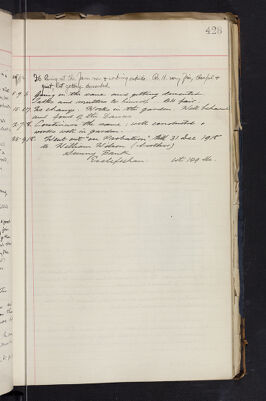 428
Is living at the farm now & working outside. B. H. very fair, cheerful &
quiet but getting demented.
Going on the same and getting demented
talks and mutters to himself. BH fair.
No change. Works in the garden. Well behaved
and fond of the Dances
Continues the same, well conducted &
works well in garden.
Went out "on Probation" till 31 Dec 1918
to William Watson (brother)
Sunny Bank
Ecclefechan. Wt. 149 lbs.